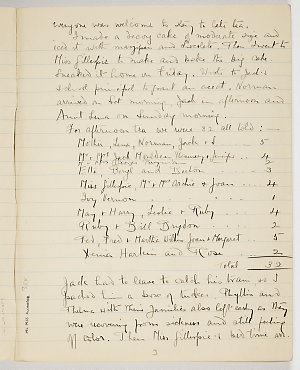 everyone was welcome to stay to late tea.
I made a decoy cake of moderate size and
iced it with marzipan and chocolate. Then I went to
Miss Gillespie to make and bake the big cake.
Sneaked it home on Friday. Wrote to Jack's
school principal to grant an exeat. Norman
arrived on Sat morning, Jack in afternoon and
Aunt Lena on Sunday morning.
For afternoon tea we were 32 all told:—
Mother, Lena, Norman, Jack + I ... 5
Mr + Mrs Jack, Nancy + .. 4
Ella, Beryl and .. 3
Miss Gillespie, Mr + Mrs Archie + Joan ... 4
Joy Vernon ... 1
May + Harry, Leslie + Ruby ... 4
+ Bill Brydon ... 2
Ted, Fred + Martha, Joan + Margaret 5
and Rose ... 2
Total 32
Jack had to leave to catch his train so I
packed him a box of tucker. Phyllis and
Thelma with their families also left early as they
were recovering from sickness and still feeling
off color. Then Miss Gillespie + had tome and
3